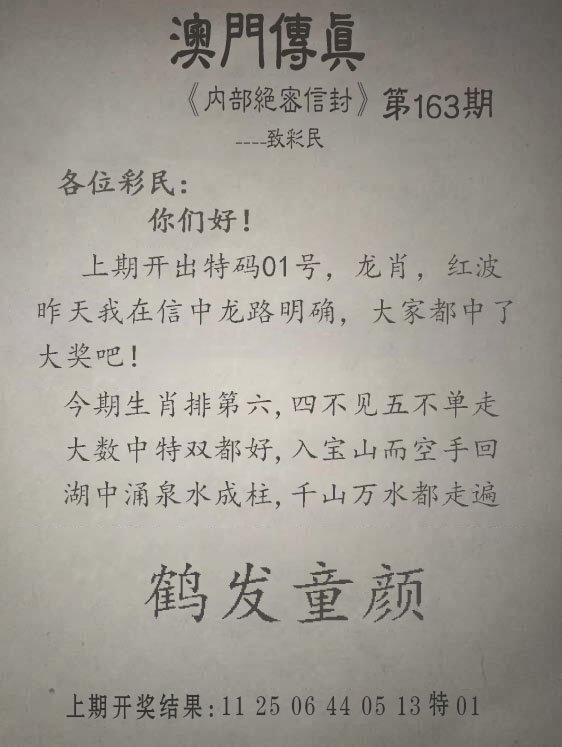 澳門傳眞
《内部絕密信封》第163期
----致彩民
各位彩民：
你们好！
上期开出特码01号，龙肖，红波
昨天我在信中龙路明确，大家都中了
大奖吧！
今期生肖排第六,四不见五不单走
大数中特双都好,入宝山而空手回
湖中涌泉水成柱,千山万水都走遍
鹤发童颜
上期开奖结果:11 25 06 44 05 13 特 01